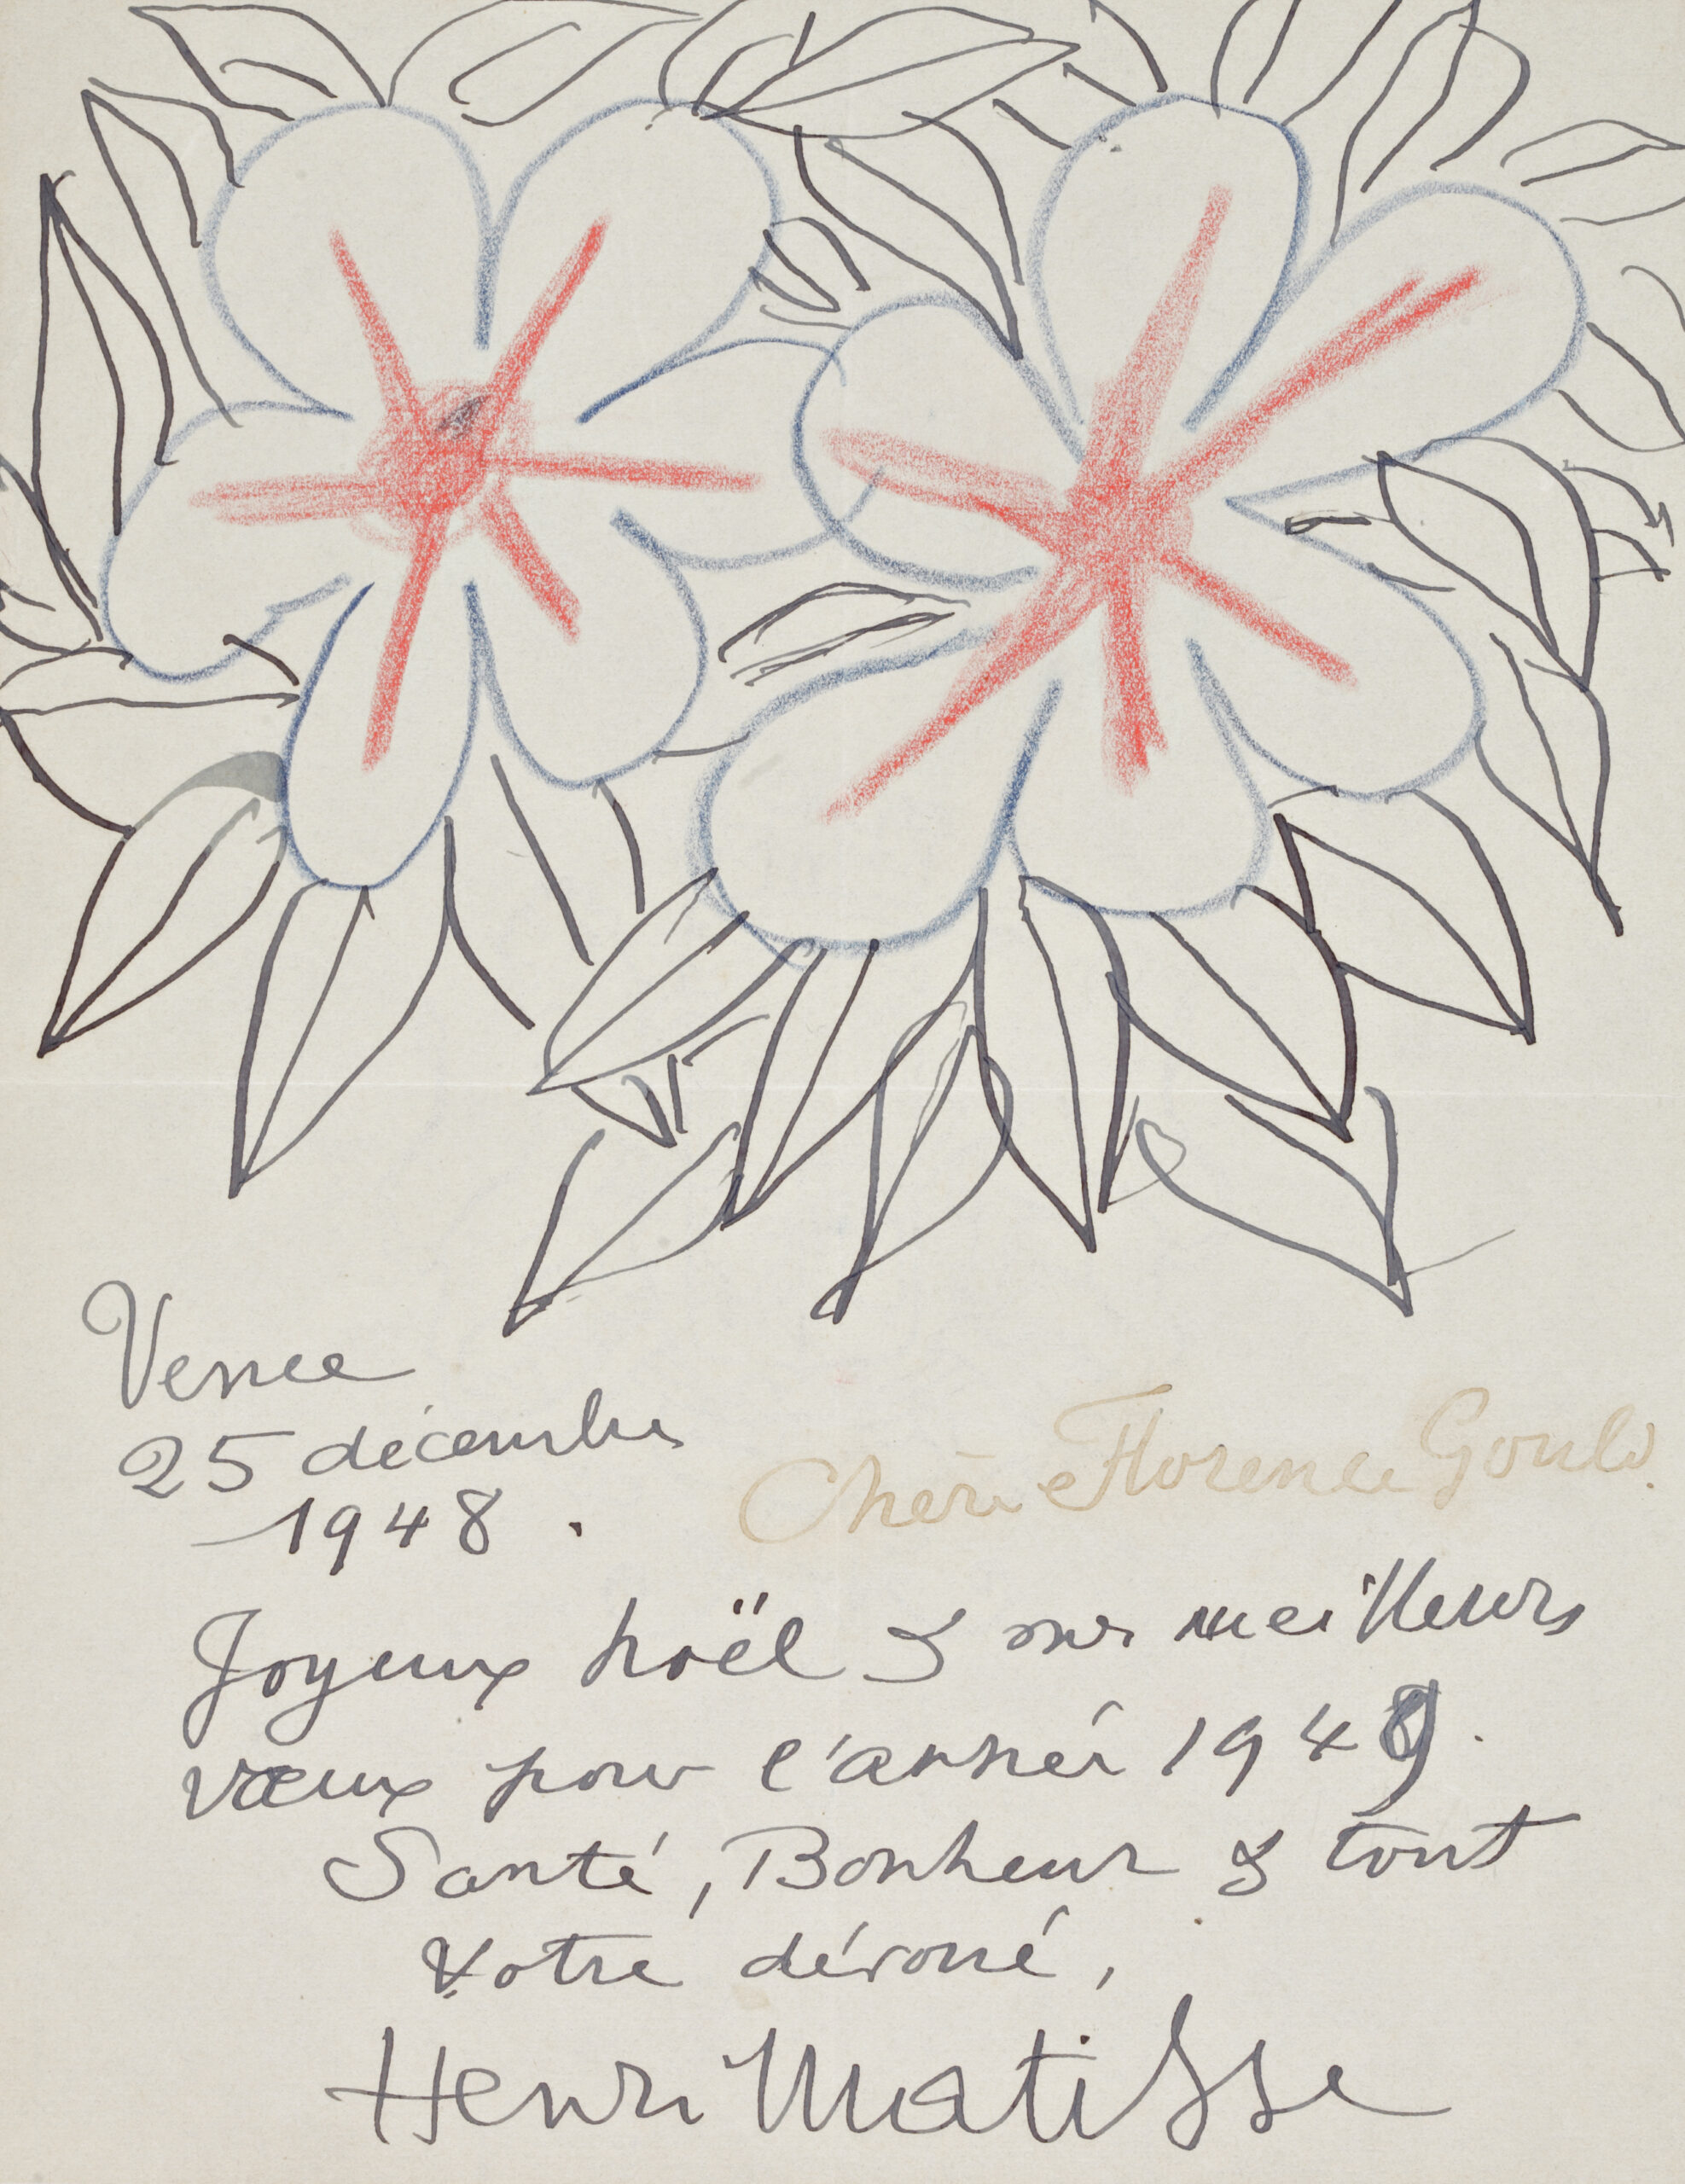 Vence
25 décembre
1948.
Chérie Florence Gould.
Joyeux noël & mes meilleurs
vœux pour l'année 1949.
Santé, Bonheur & tout
Votre dévoué,
Henri Matisse